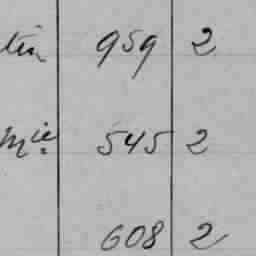 tin 959 2
Mie 545 2
608 2